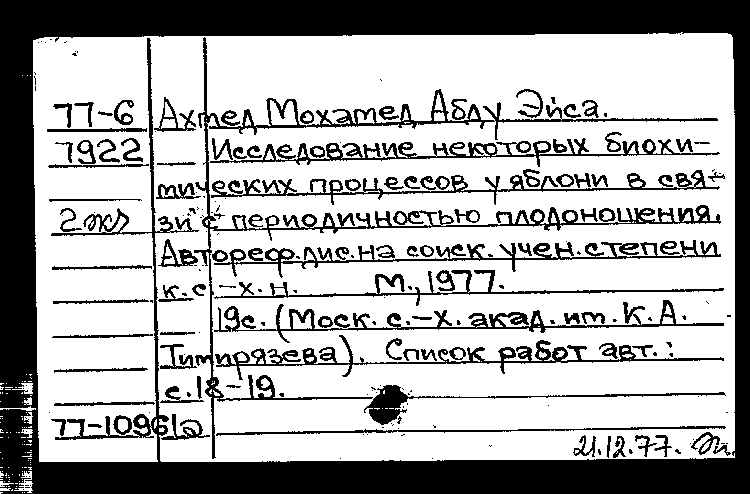 77-6 Ахмед Мохамед Абду Эйса.
7922 Исследование некоторых биохи-
мических процессов у яблони в свя-
2 экз зи с периодичностью плодоношения.
Автореф.дис.на соиск.учен.степени
к.с.-х.н. М., 1977.
19с. (Моск. с.-х. акад. им. К.А.
Тимирязева). Список работ авт.:
с.18-19.
77-10961а
21.12.77.